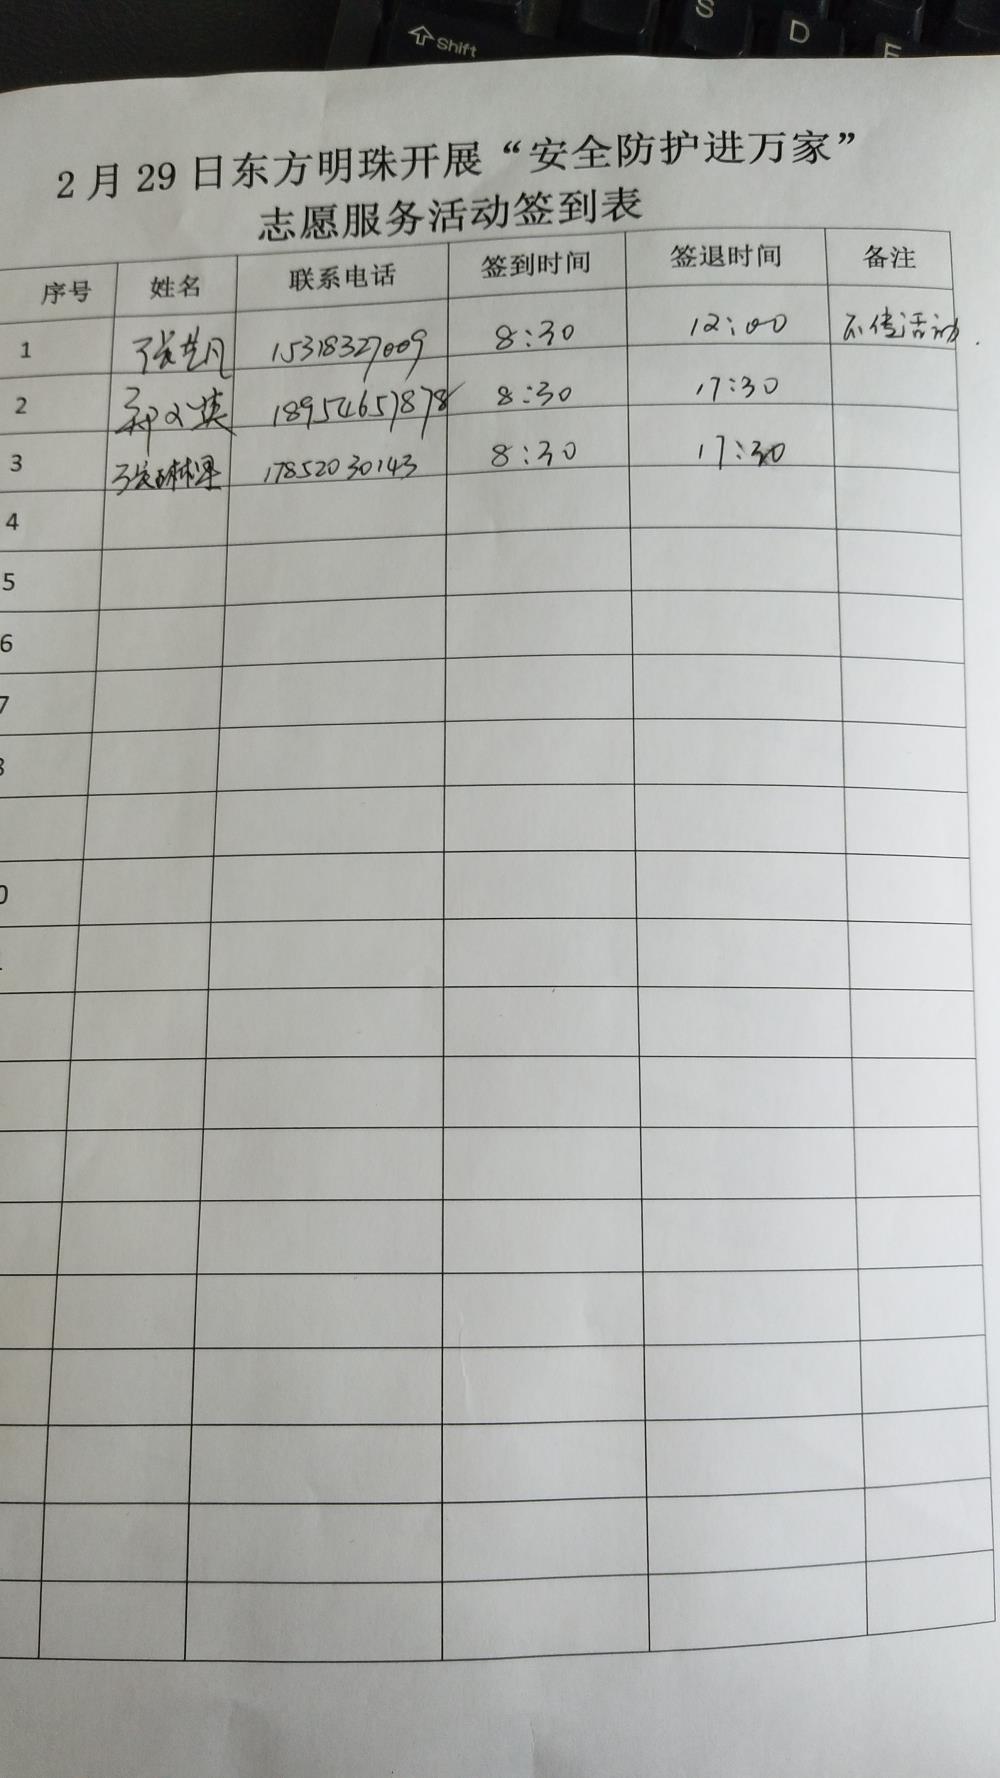 Shift
S
D
F
2月29日东方明珠开展“安全防护进万家”
志愿服务活动签到表
序号 姓名 联系电话 签到时间 签退时间 备注
1 张芸凡 15318327009 8:30 12:00 不传活动
2 郑文英 18954657878 8:30 17:30
3 张琳涅 17852030143 8:30 17:30
4
5
6
7
8
0